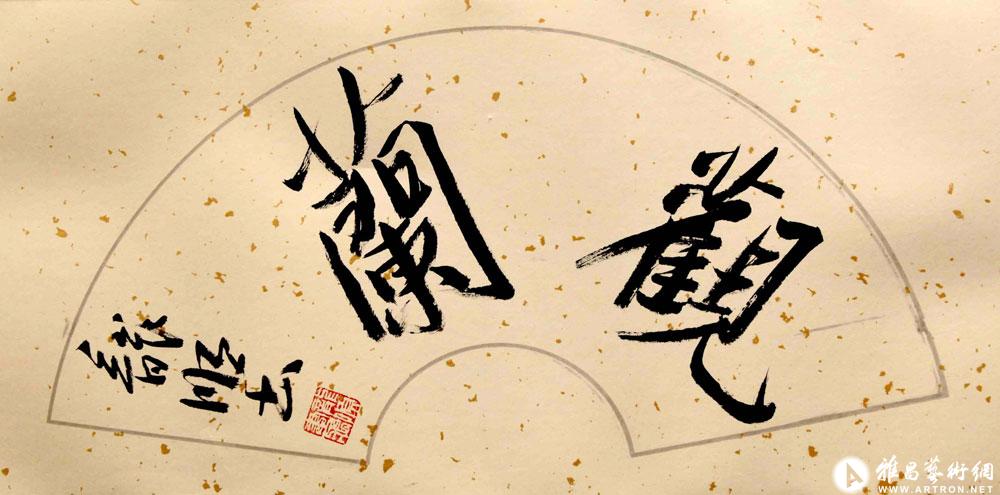 觀蘭
書
雅昌藝術網
WWW.ARTRON.NET